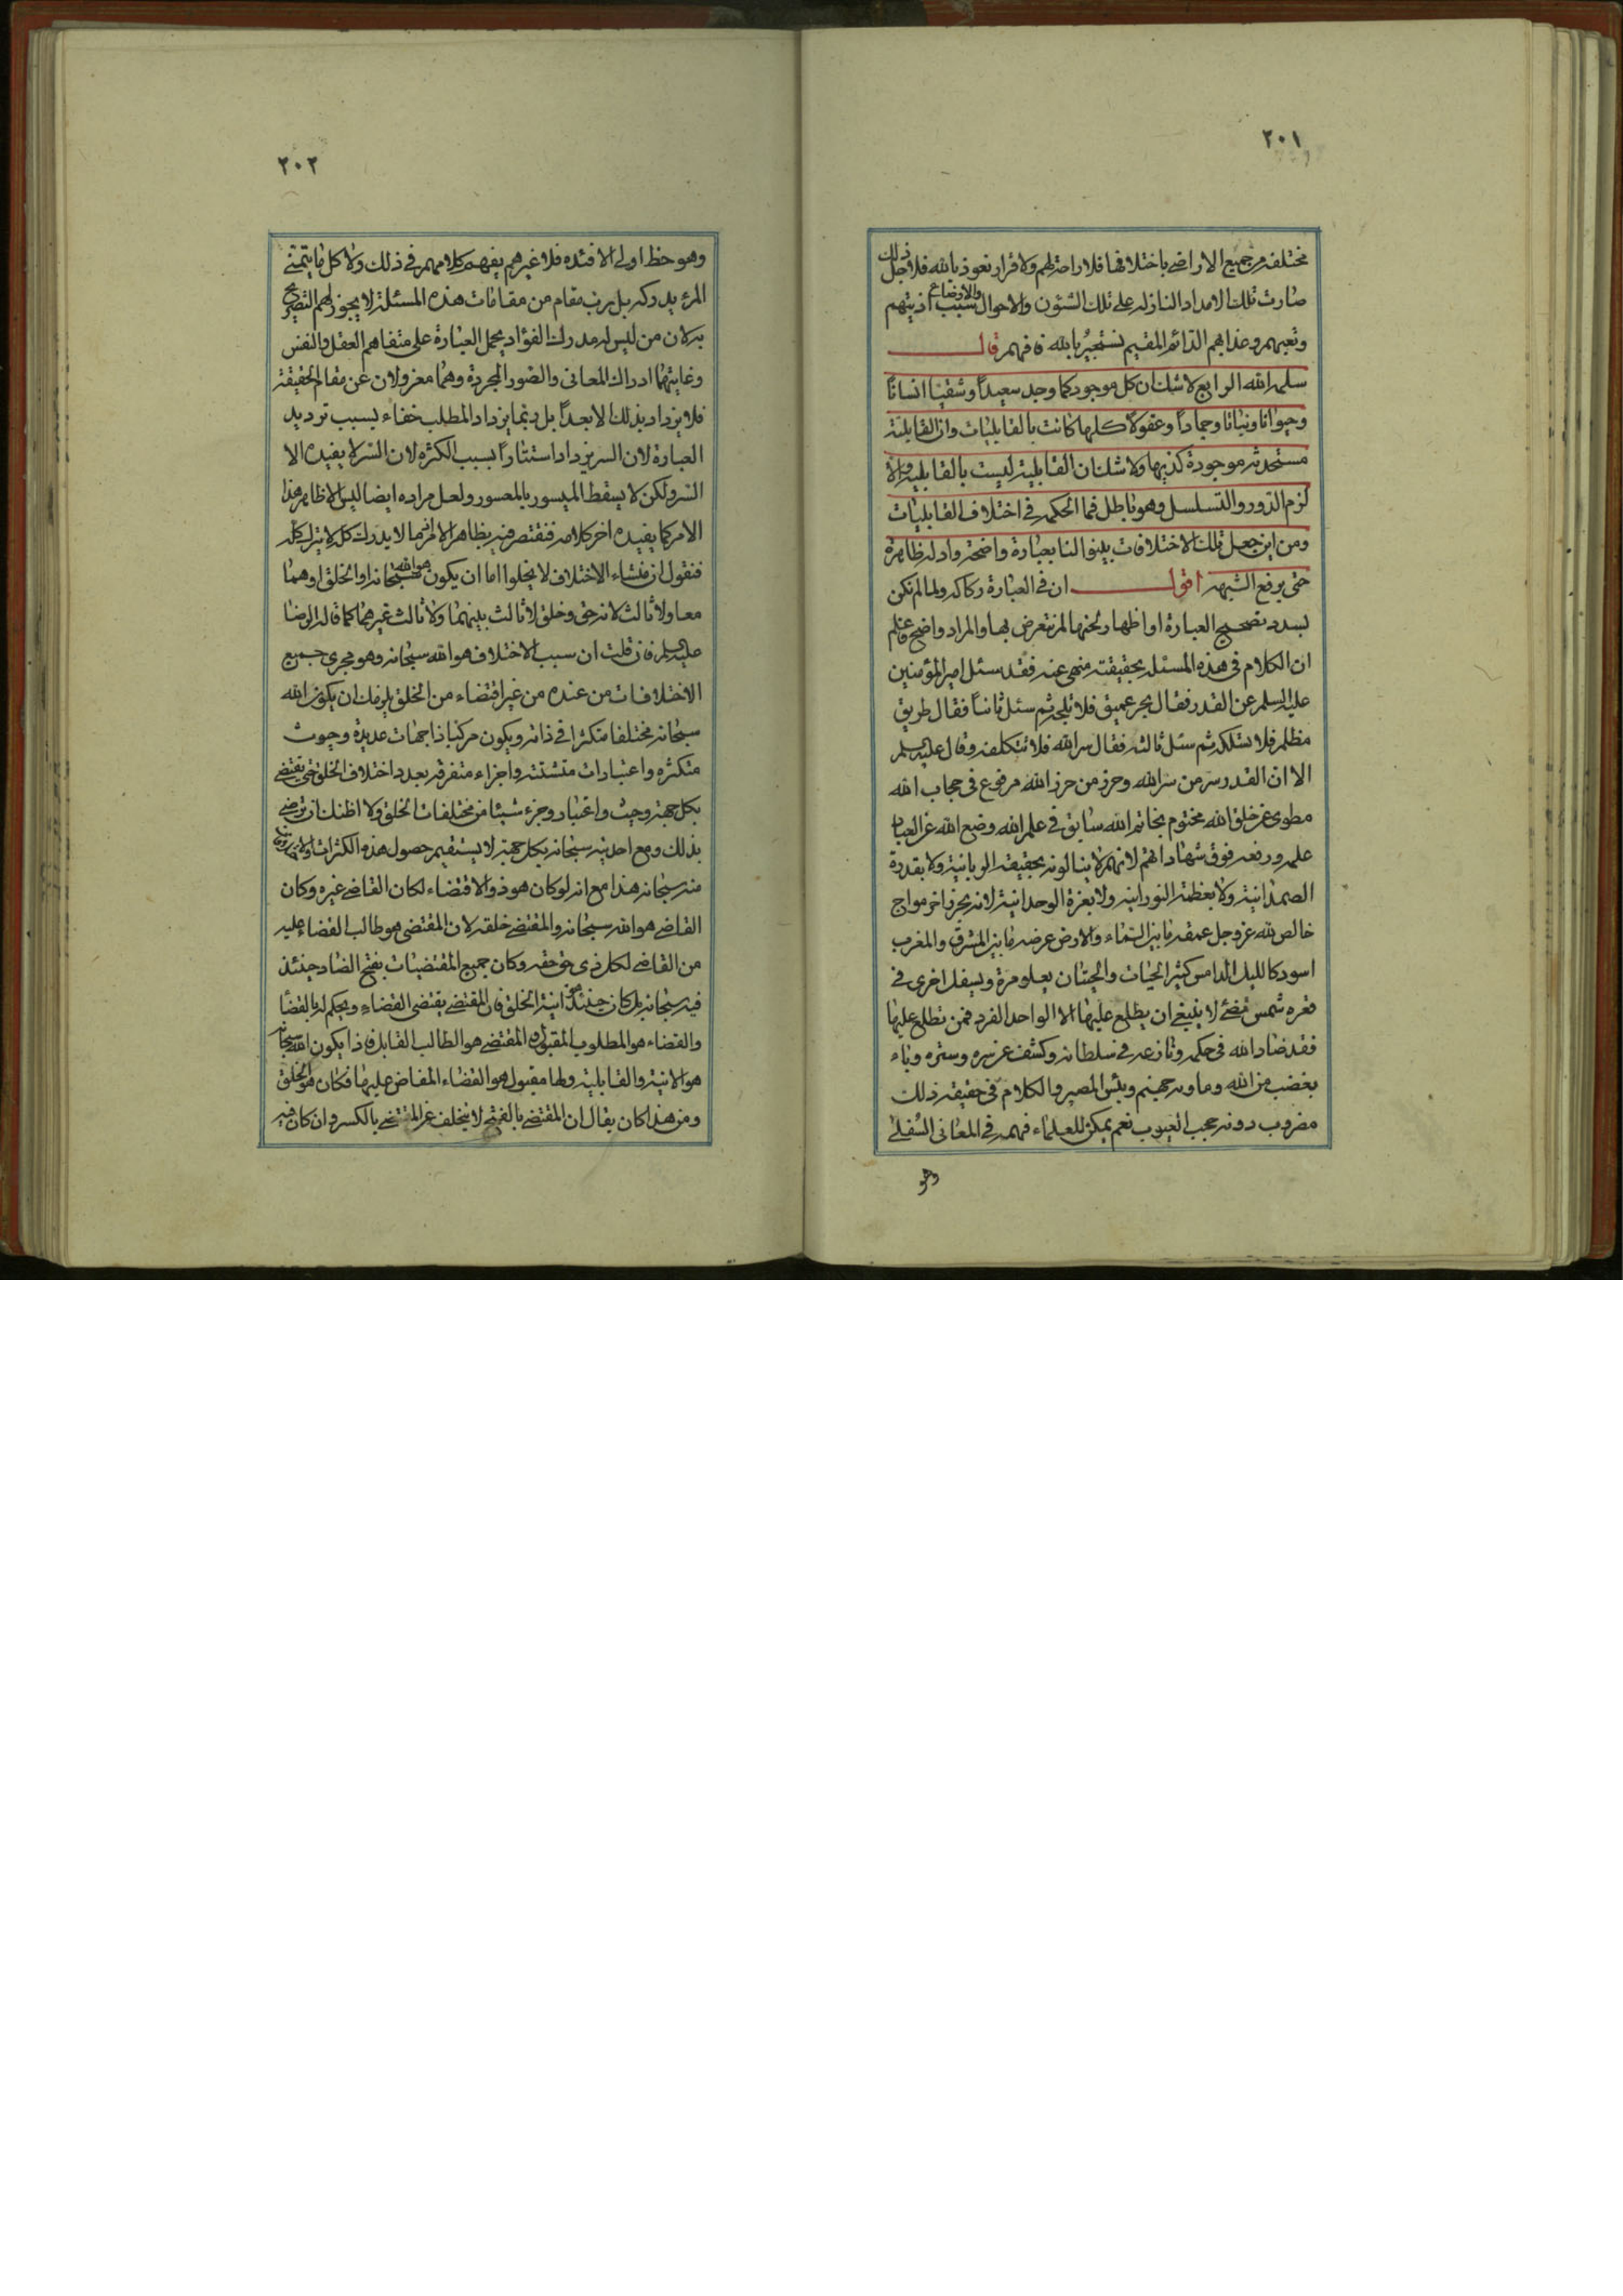 ٢٠١
مختلفة من جميع الاراضي باختلافها فلا راحة لهم ولا قرار نعوذ بالله فلاجل ذلك
صارت تلك الامداد النازلة على تلك الشئون والاحوال والاوضاع سبب اذيتهم
وتعبهم وعذابهم الدائم المقيم نستجير بالله فافهم قال
سلمه الله الرابع لا شك ان كل موجود كما وجد سعيداً وشقيا انسانا
وحيوانا ونباتا وجماداً وعقولا كلها كانت بالقابليات وان القابلية
مستحدثة موجودة كذيها ولا شك ان القابلية ليست بالقابلية والا
لزم الدور والتسلسل وهو باطل فما الحكم في اختلاف القابليات
ومن اين جعل تلك الاختلافات بينوا لنا بعبارة واضحة وادلة ظاهرة
حتى يرفع الشبهه اقول ان في العبارة ركاكة ولما لم نكن
بسدد تصحيح العبارة او اظهار لحنها لم نتعرض بها والمراد واضح فاعلم
ان الكلام في هذه المسئلة بحقيقته منهى عنه فقد سئل امير المؤمنين
عليه السلم عن القدر فقال بحر عميق فلا تلجه ثم سئل ثانياً فقال طريق
مظلم فلا تسلكه ثم سئل ثالثه فقال سر الله فلا تتكلفه وقال عليه السلم
الا ان القدر سر من سر الله وحرز من حرز الله مرفوع في حجاب الله
مطوى عن خلق الله مختوم بخاتم الله سابق في علم الله وضع الله عن العباد
علمه ورفعه فوق شهاداتهم لانهم لا ينالونه بحقيقة الربانية ولا بقدرة
الصمدانية ولا بعظمة النورانية ولا بعزة الوحدانية لانه بحر زاخر مواج
خالص لله عز وجل عمقه ما بين السماء والارض عرضه ما بين المشرق والمغرب
اسود كالليل الدامس كثير الحيات والحيتان يعلو مرة ويسفل اخرى في
قعره شمس تضئ لا ينبغي ان يطلع عليها الا الواحد الفرد فمن تطلع عليها
فقد ضاد الله في حكمه ونازعه في سلطانه وكشف عن سره وستره وباء
بغضب من الله وماويه جهنم وبئس المصير والكلام في حقيقة ذلك
مضروب دونه حجب الغيوب نعم يمكن للعلماء فهمه في المعانى السفلى
وهو
٢٠٢
وهو حظ اولى الافئده فلا غيرهم يفهم كلامهم في ذلك ولا كل ما يتمنى
المرء يدركه بل رب مقام من مقامات هذه المسئلة لا يجوز لهم التصريح
به لان من ليس له مدرك الفؤاد يحمل العبارة على متفاهم العقل والنفس
وغايتهما ادراك المعانى والصور المجردة وهما معزولان عن مقام الحقيقة
فلا يزداد بذلك الا بعداً بل ربما يزداد المطلب خفاء بسبب ترديد
العبارة لان السر يزداد استتاراً بسبب الكثره لان السر لا يفيده الا
السر ولكن لا يسقط الميسور بالمعسور ولعل مراده ايضا ليس الا ظاهر هذا
الامر كما يفيده اخر كلامه فنقتصر فيه بظاهر الامر فما لا يدرك كله لا يترك كله
فنقول ان منشاء الاختلاف لا يخلوا اما ان يكون هو الله سبحانه او الخلق او هما
معا ولا ثالث لانه حق وخلق لا ثالث بينهما ولا ثالث غيرهما كما قاله الرضا
عليه السلم فان قلت ان سبب الاختلاف هو الله سبحانه وهو مجرى جميع
الاختلافات من عنده من غير اقتضاء من الخلق يلزمك ان يكون الله
سبحانه مختلفا متكثرا في ذاته ويكون مركبا ذا جهات عديدة وحيوث
متكثره واعتبارات متشتته واجزاء متفرقه بعدد اختلاف الخلق حتى يقتضى
بكل جهة وحيث واعتبار وجزء شيئا من مختلفات الخلق ولا اظنك ان ترضى
بذلك ومع احديته سبحانه بكل جهة لا يستقيم حصول هذه الكثرات
منه سبحانه هذا مع انه لو كان هو ذو الاقتضاء لكان القاضى غيره وكان
القاضى هو الله سبحانه والمقتضى خلقه لان المقتضى هو طالب القضاء عليه
من القاضى لكل ذى حق حقه وكان جميع المقتضيات بفتح الضاد حينئذ
فيه سبحانه بل كان حينئذ هو انية الخلق فان المقتضى يقتضى القضاء ويحكم له بالقضا
والقضاء هو المطلوب المقبول والمقتضى هو الطالب القابل فاذا يكون الله سبحانه
هو الانية والقابلية ولها مقبول هو القضاء المفاض عليها فكان هو الخلق
ومن هذا كان يقال ان المقتضى بالفتح لا يتخلف عن المقتضى بالكسر وان كان فيه